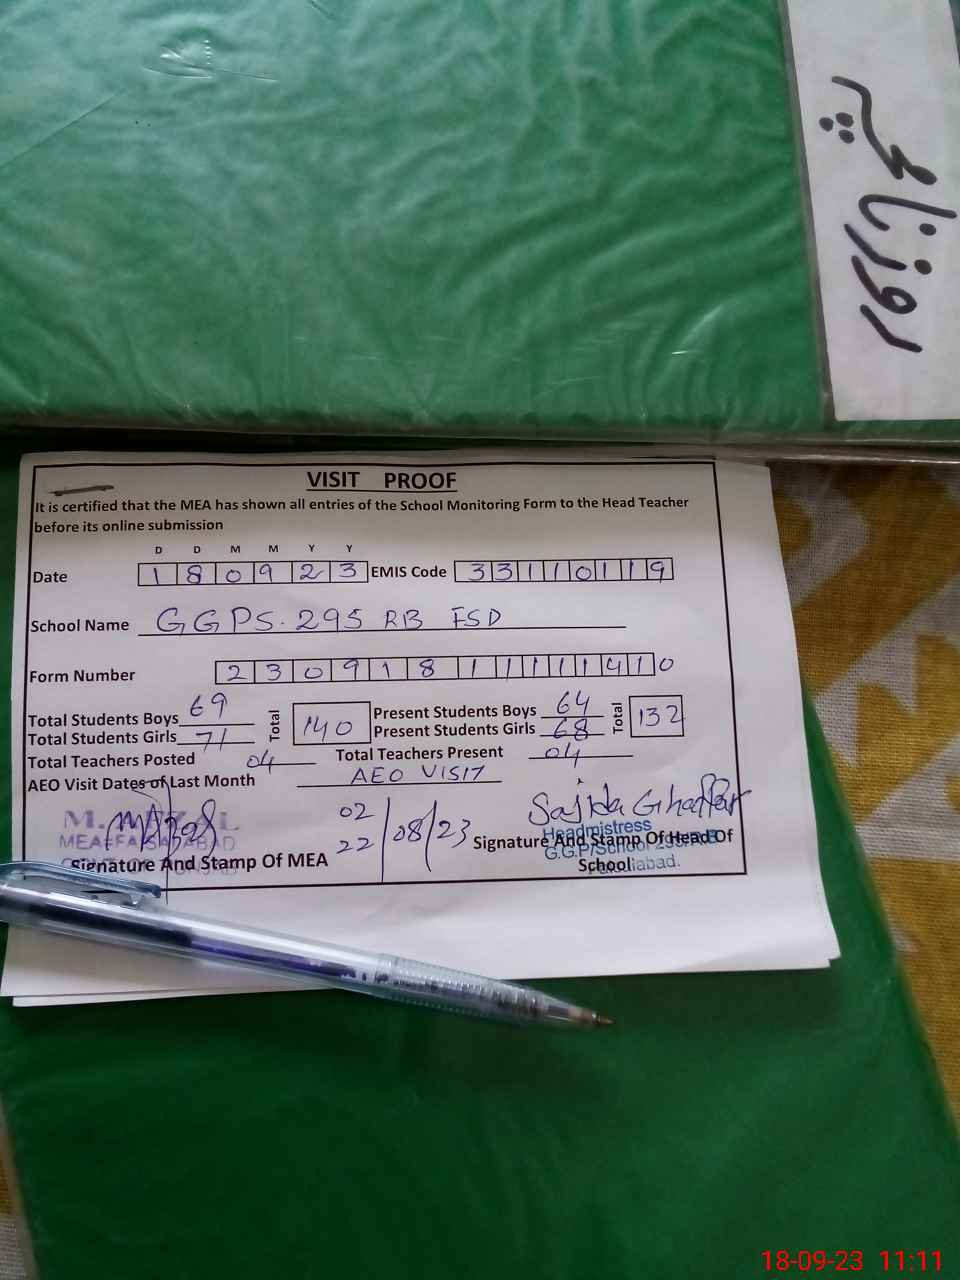 روزنامچہ
VISIT PROOF
It is certified that the MEA has shown all entries of the School Monitoring Form to the Head Teacher
before its online submission
D D M M Y Y
Date 180923 EMIS Code 33110119
School Name GGPS. 295 RB FSD
Form Number 2309181111410
Total Students Boys 69 Total 140 Present Students Boys 64 Total 132
Total Students Girls 71 Present Students Girls 68
Total Teachers Posted 04 Total Teachers Present 04
AEO Visit Dates of Last Month AEO VISIT
02
22 /08/23
Sajida Ghaffar
MEA FAISALABAD
Signature And Stamp Of MEA
Signature And Stamp Of Head Of
School
Headmistress
G.G.P/School 295/R.B
Faisalabad.
18-09-23 11:11